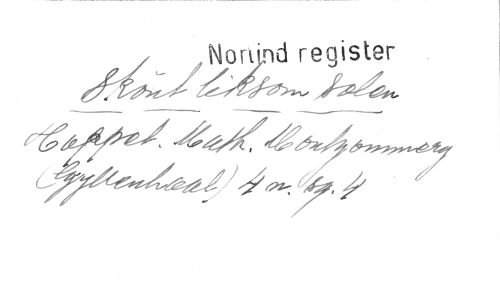 Norlind register
Skönt liksom solen
Hoppet. Math. Montgommery
(Gyllenhaal) 4 n. sg. 4